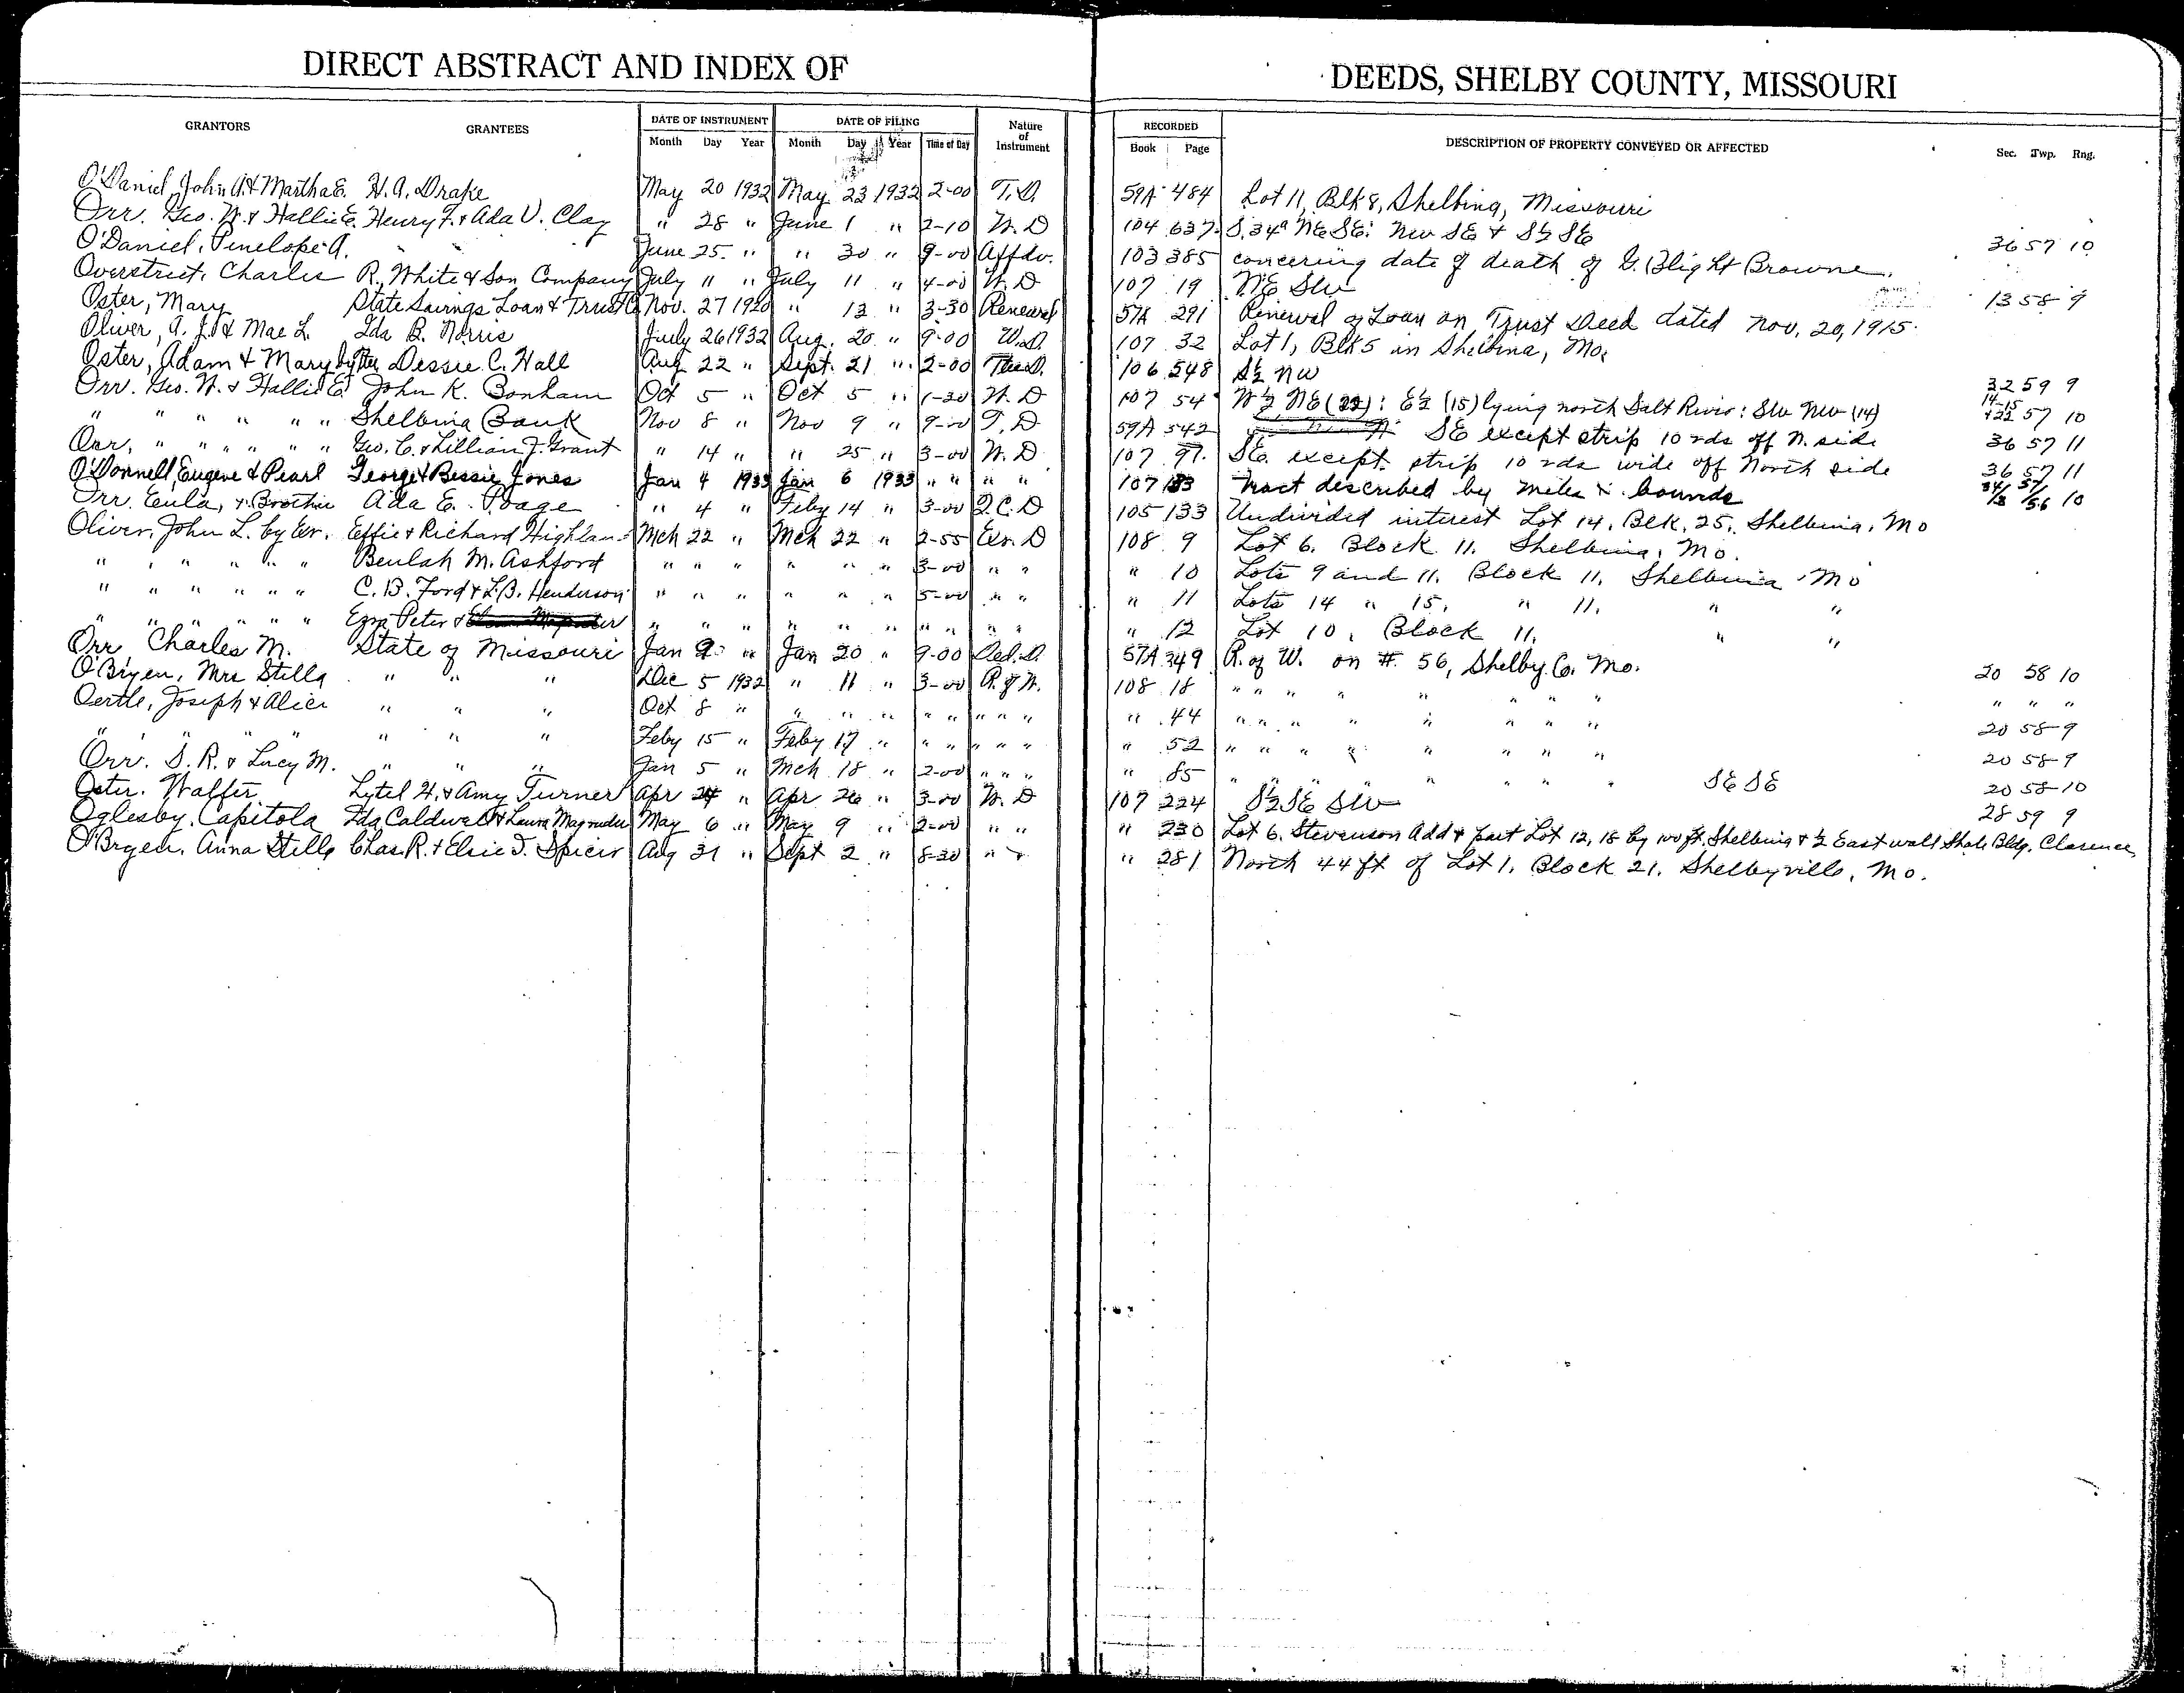 DIRECT ABSTRACT AND INDEX OF DEEDS, SHELBY COUNTY, MISSOURI
GRANTORS GRANTEES DATE OF INSTRUMENT DATE OF FILING Nature of Instrument RECORDED DESCRIPTION OF PROPERTY CONVEYED OR AFFECTED Sec. Twp. Rng.
Month Day Year Month Day Year Time of Day Book Page
O'Daniel, John A. & Martha E. H. A. Drake May 20 1932 May 23 1932 2-00 T. D. 59A 484 Lot 11, Blk 8, Shelbina, Missouri
Orr. Geo. W. & Hallie E. Henry F. & Ada V. Clay " 28 " June 1 " 2-10 W. D 104 637 S. 34a NE SE: NW SE & S½ SE 36 57 10
O'Daniel, Penelope A. June 25 " " 30 " 9-00 Affdv. 103 385 concering date of death of G. Blight Browne.
Overstreet, Charles R. White & Son Company July 11 " July 11 " 4-00 W. D 107 19 NE SW 13 58 9
Oster, Mary State Savings Loan & Trust Co Nov. 27 1920 " 12 " 3-30 Renewal 57A 291 Renewal of Loan on Trust Deed dated Nov. 20, 1915.
Oliver, A. J. & Mae L. Ida B. Norris July 26 1932 Aug. 20 " 9-00 W.D. 107 32 Lot 1, Blk 5 in Shelbina, Mo.
Oster, Adam & Mary by Dessie C. Hall Aug 22 " Sept. 21 " 2-00 106 548 S½ NW 32 59 9
Orr. Geo. W. & Hallie E. John K. Bonham Oct 5 " Oct 5 " 1-30 W. D 107 54 W½ NE (22): E½ (15) lying north Salt River: SW NW (14) 14-15 & 22 57 10
" " " " " " Shelbina Bank Nov 8 " Nov 9 " 9-00 T. D 59A 542 SE except strip 10 rds off N. side 36 57 11
Orr, " " " " " Geo. C. & Lillian J. Grant " 14 " " 25 " 3-00 W. D 107 97 SE. except strip 10 rds wide off North side 36 57 11
O'Donnell, Eugene & Pearl George & Bessie Jones Jan 4 1933 Jan 6 1933 " " " " 107 133 tract described by miles & bounds 34/3 57/56 10
Orr. Eula, & Brother Ada E. Poage " 4 " Feby 14 " 3-00 Q. C. D 105 133 Undivided interest Lot 14, Blk. 25. Shelbina. Mo
Oliver, John L. by Exr. Effie & Richard Highland Mch 22 " Mch 22 " 2-55 Exr. D 108 9 Lot 6. Block 11. Shelbina. Mo.
" " " " " " Beulah M. Ashford " " " " " " 3-00 " " " 10 Lots 9 and 11. Block 11. Shelbina Mo
" " " " " " C. B. Ford & L. B. Henderson " " " " " " 5-00 " " " 11 Lots 14 " 15. " 11. " "
" " " " " " Ezra Peter & " " " " " " " " " " " 12 Lot 10. Block 11. " "
Orr Charles M. State of Missouri Jan 9 " Jan 20 " 9-00 Ded. D. 57A 349 R. of W. on # 56, Shelby Co. Mo. 20 58 10
O'Bryen, Mrs Stella " " " Dec 5 1932 " 11 " 3-00 R. of W. 108 18 " " " " " " " " " " "
Oertle, Joseph & Alice " " " Oct 8 " " " " " " " " " " 44 " " " " " " " " 20 58 9
" " " " " " Feby 15 " Feby 17 " " " " " " " 52 " " " " " " " " 20 58 9
Orr. S. R. & Lucy M. " " " Jan 5 " Mch 18 " 2-00 " " " " 85 " " " " " " " " SE SE 20 58 10
Oster. Walter Lytel H. & Amy Turner Apr 24 " Apr 26 " 3-00 W. D 107 224 S½ SE SW 28 59 9
Oglesby, Capitola Ida Caldwell & Laura Magruder May 6 " May 9 " 2-00 " " " 230 Lot 6. Stevenson Add & part Lot 12, 18 by 100 ft. Shelbina & ½ East wall Bldg. Clarence
O'Bryen. Anna Stella Chas. R. & Elsie T. Spicer Aug 31 " Sept 2 " 8-30 " " " 281 North 44 ft of Lot 1. Block 21. Shelbyville, Mo.